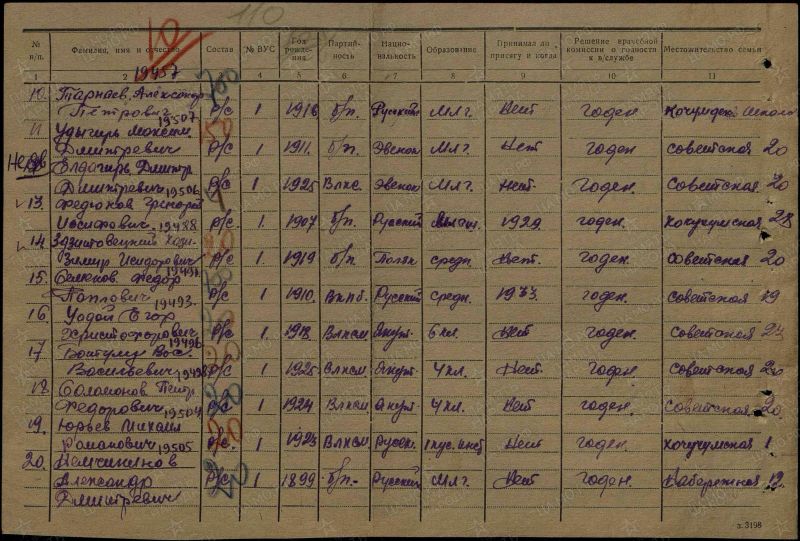 110
№ п/п. Фамилия, имя и отчество Состав № ВУС Год рождения Партийность Национальность Образование Принимал ли присягу и когда Решение врачебной комиссии о годности к в/службе Местожительство семьи
1 2 4 5 6 7 8 9 10 11
19457
10. Александр
Петрович р/с 1 1918 б/п. Русский Млг. Нет годен.
19507
11 Удыгирь Максим
Дмитревич р/с 1 1911. б/п. Эвенок Млг. Нет годен Советская 20
Елдогирь Дмитр.
Дмитревич р/с 1 1925 Влкс. Эвенок Млг. Нет. годен. Советская 20
19506
13. Григорий
Иосифович р/с. 1 1907 б/п. Русский 1929 годен. Кочумская 28
19488
14.
Исидорович р/с. 1 1919 б/п. Поляк средн. Нет. годен. Советская 20
15. Семенов Федор
Павлович р/с 1 1910. Русский средн. 1933 годен. Советская 19
19493.
16 Удой Егор
Христофорович р/с. 1 1918 Влксм Якут. 6 кл. Нет годен. Советская
19496
17 Вас.
Васильевич р/с 1 1925 Влксм. Якут 4 кл. Нет. годен. Советская 20
19498
18. Соломонов Петр
Федорович р/с. 1 1924 Влксм Якут. 4 кл. Нет годен. Советская 20.
19504
19. Юрьев Михаил
Романович р/с. 1 1923 Влксм. Русск. Нет годен. 1
19505
20. Немчинов
Александр р/с 1 1899 б/п.- Русский Млг. Нет годен. Набережная 12
Дмитревич
з. 3198